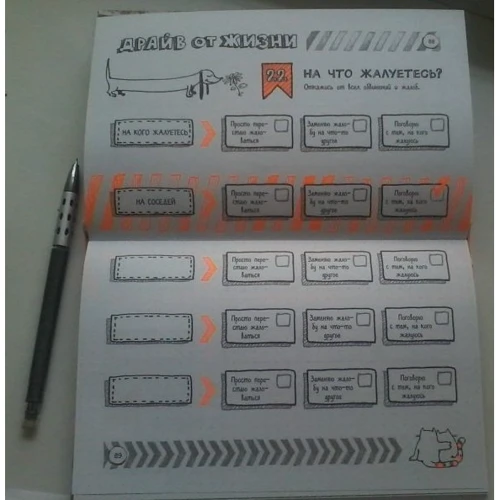 ДРАЙВ ОТ ЖИЗНИ
22.
НА ЧТО ЖАЛУЕТЕСЬ?
Откажись от всех обвинений и жалоб.
НА КОГО ЖАЛУЕТЕСЬ
Просто пере-
стаю жало-
ваться
Заменяю жало-
бу на что-то
другое
Поговорю
с тем, на кого
жалуюсь
НА СОСЕДЕЙ
Просто пере-
стаю жало-
ваться
Заменяю жало-
бу на что-то
другое
Поговорю
с тем, на кого
жалуюсь
Просто пере-
стаю жало-
ваться
Заменяю жало-
бу на что-то
другое
Поговорю
с тем, на кого
жалуюсь
Просто пере-
стаю жало-
ваться
Заменяю жало-
бу на что-то
другое
Поговорю
с тем, на кого
жалуюсь
Просто пере-
стаю жало-
ваться
Заменяю жало-
бу на что-то
другое
Поговорю
с тем, на кого
жалуюсь